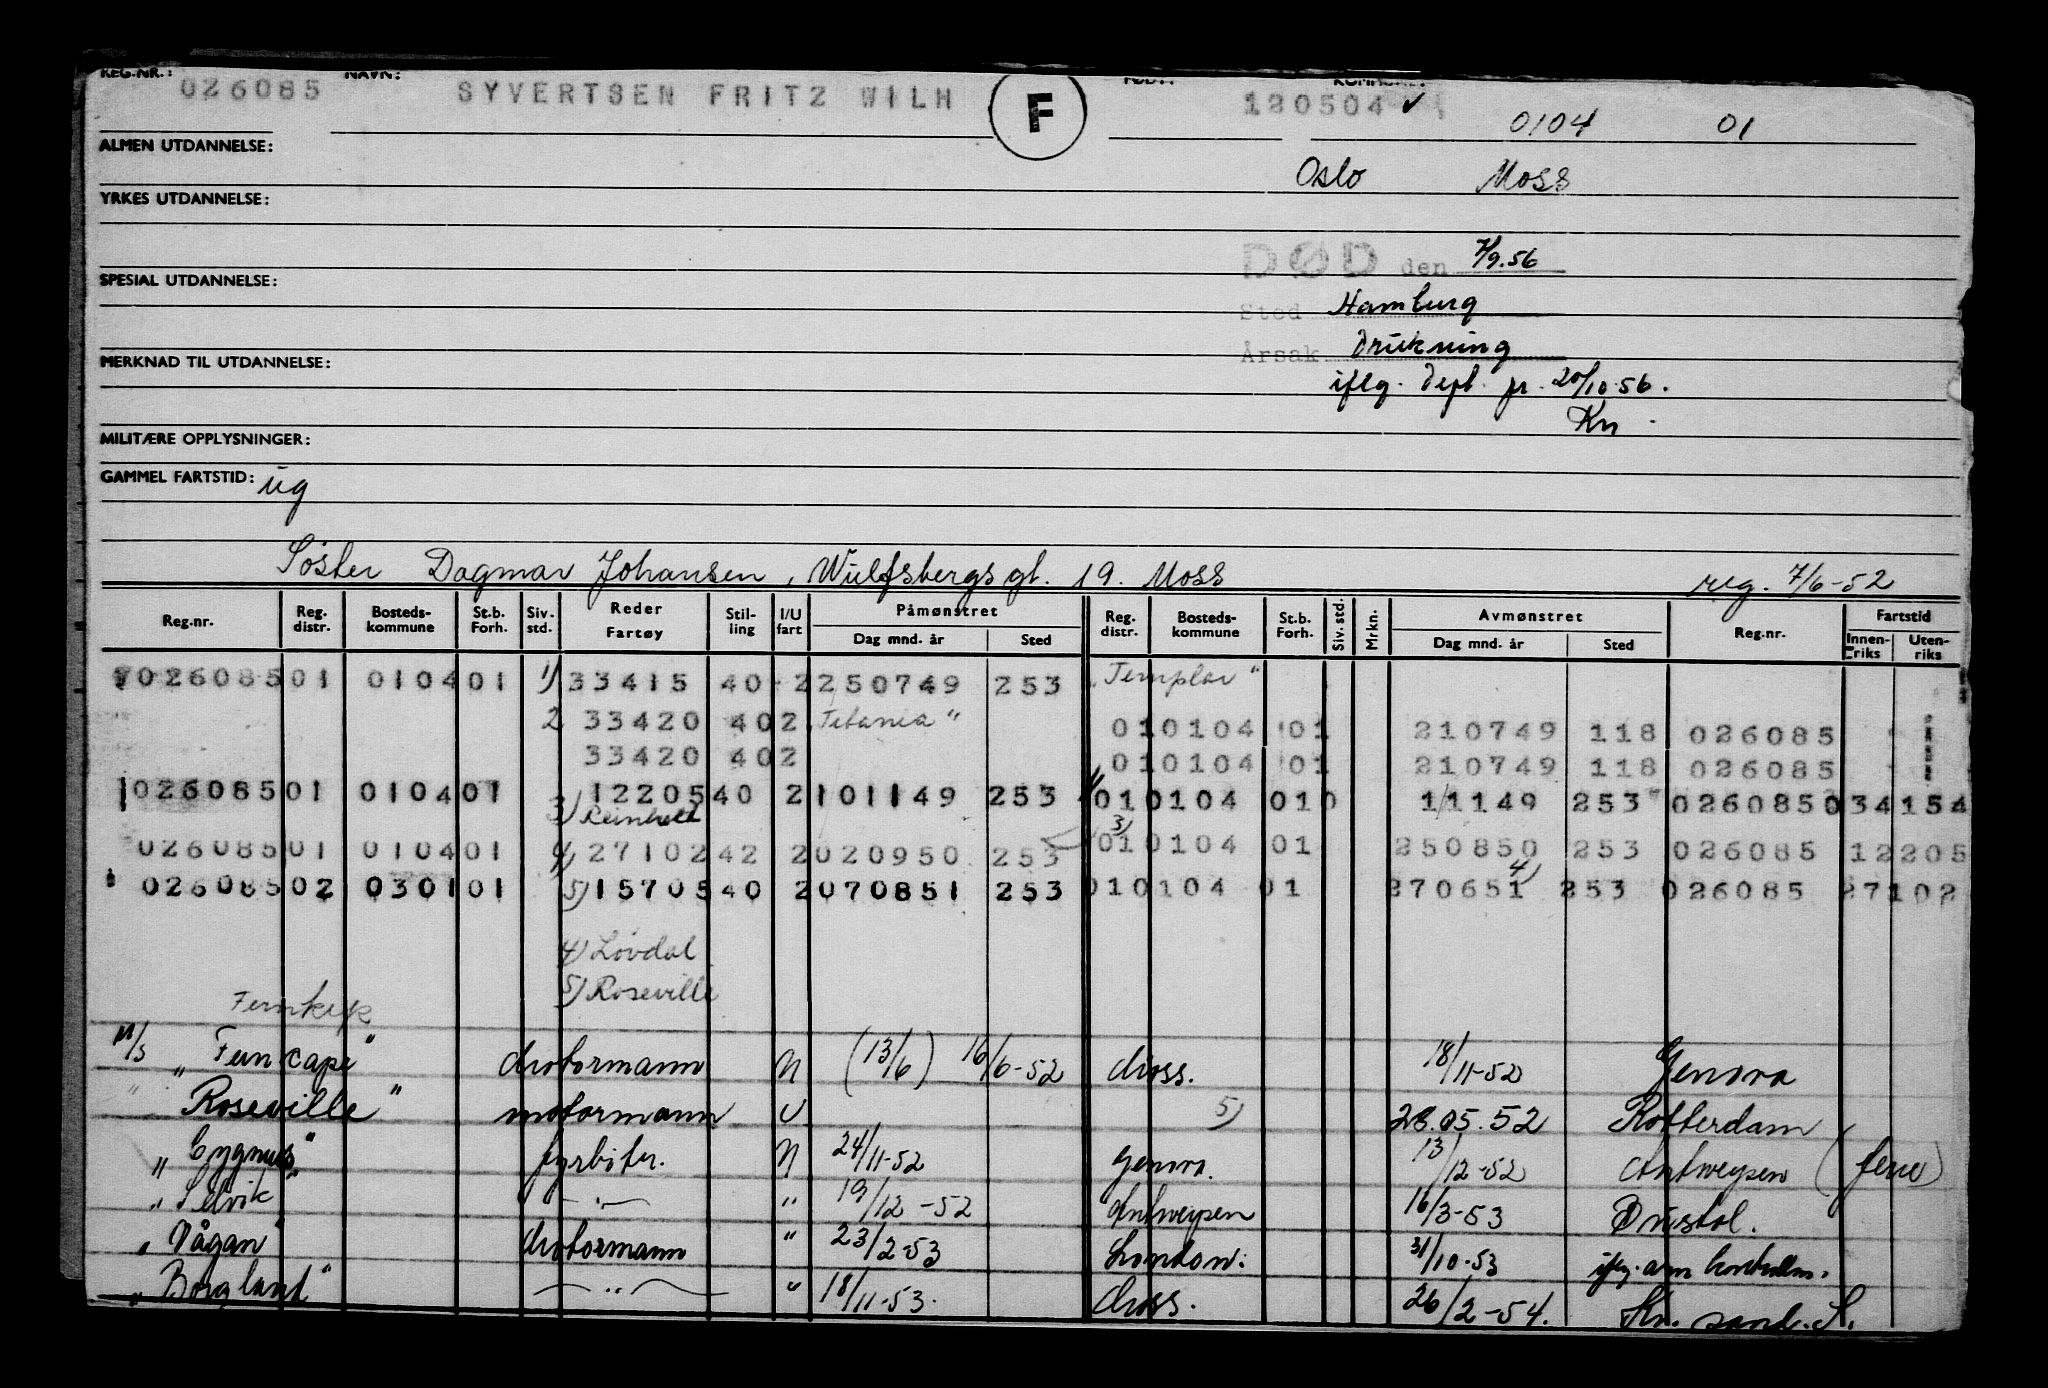 REG.NR.: 026085 NAVN: SYVERTSEN FRITZ WILH F FØDT: 120504 ✓ KOMMUNE: 0104 01
ALMEN UTDANNELSE:
Oslo Moss
YRKES UTDANNELSE:
DØD den 7/9.56
SPESIAL UTDANNELSE:
Sted Hamburg
Årsak drukning
MERKNAD TIL UTDANNELSE:
iflg. dept. pr. 20/10.56.
Kn.
MILITÆRE OPPLYSNINGER:
GAMMEL FARTSTID: ug
Søster Dagmar Johansen, Wulfsbergs gt. 19. Moss reg. 7/6-52
Reg.nr. Reg. distr. Bosteds- kommune St.b. Forh. Siv. std. Reder Fartøy Stil- ling I/U fart Påmønstret Dag mnd. år Sted Reg. distr. Bosteds- kommune St.b. Forh. Siv. std. Mrkn. Avmønstret Dag mnd. år Sted Reg.nr. Fartstid Innen- riks Uten- riks
026085 01 0104 01 1) 33415 40 2 250749 253 "Templar"
2 33420 40 2 Titania" 01 0104 01 210749 118 026085
33420 40 2 01 0104 01 210749 118 026085
026085 01 0104 01 12205 40 2 101149 253 01 0104 01 0 11149 253 026085 0 34154
3) Reinholt 3)
026085 01 0104 01 4) 27102 42 2 020950 253 01 0104 01 250850 253 026085 12205
026085 02 0301 01 5) 15705 40 2 070851 253 01 0104 01 270651 4) 253 026085 27102
4) Lovdal
5) Roseville
M/S "Ferncape" Motormann N (13/6) 16/6-52 Moss. 18/11-52 Genova
" Roseville" motormann U 5) 28.05.52 Rotterdam
" Cygnus" fyrbøter. N 24/11-52 Genova. 13/12-52 Antwerpen (ferie)
" Selvik — " — " 19/12-52 Antwerpen 16/3-53 Bristol.
" Vågan" Motormann " 23/2-53 London. 31/10-53 iflg.
" Borgland" — " — " 18/11-53. Moss. 26/2-54. Kr. sand. S.